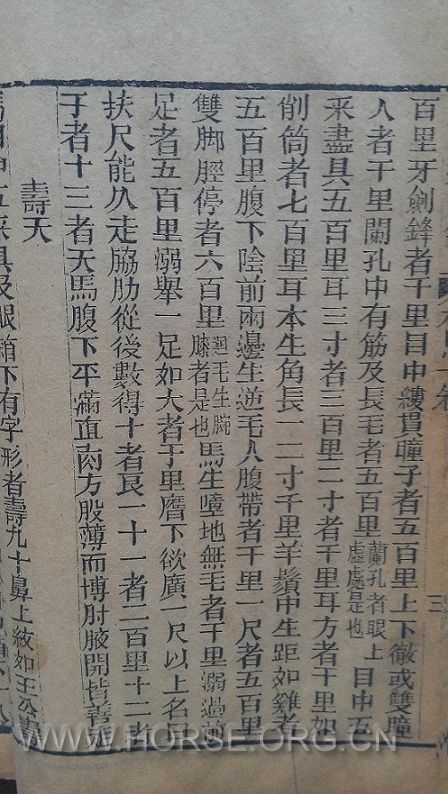 三
百里牙劍鋒者千里目中縷貫瞳子者五百里上下徹或雙瞳
人者千里闌孔中有筋及長毛者五百里蘭孔者眼上虛處是也目中五
采盡具五百里耳三寸者三百里二寸者千里耳方者千里如
削筒者七百里耳本生角長一二寸千里羊鬚中生距如雞者
五百里腹下陰前兩邊生逆毛入腹帶者千里一尺者五百里
雙脚脛停者六百里迴毛生腕膝者是也馬生墮地無毛者千里溺過前
足者五百里溺舉一足如犬者千里膺下欲廣一尺以上名
扶尺能久走脇肋從後數得十者良一十一者二百里十二者
于者十三者天馬腹下平滿直肉方股薄而博肘腋開皆善
壽夭
具及眼箱下有字形者壽九十鼻上紋如王公
WWW.HORSE.ORG.CN